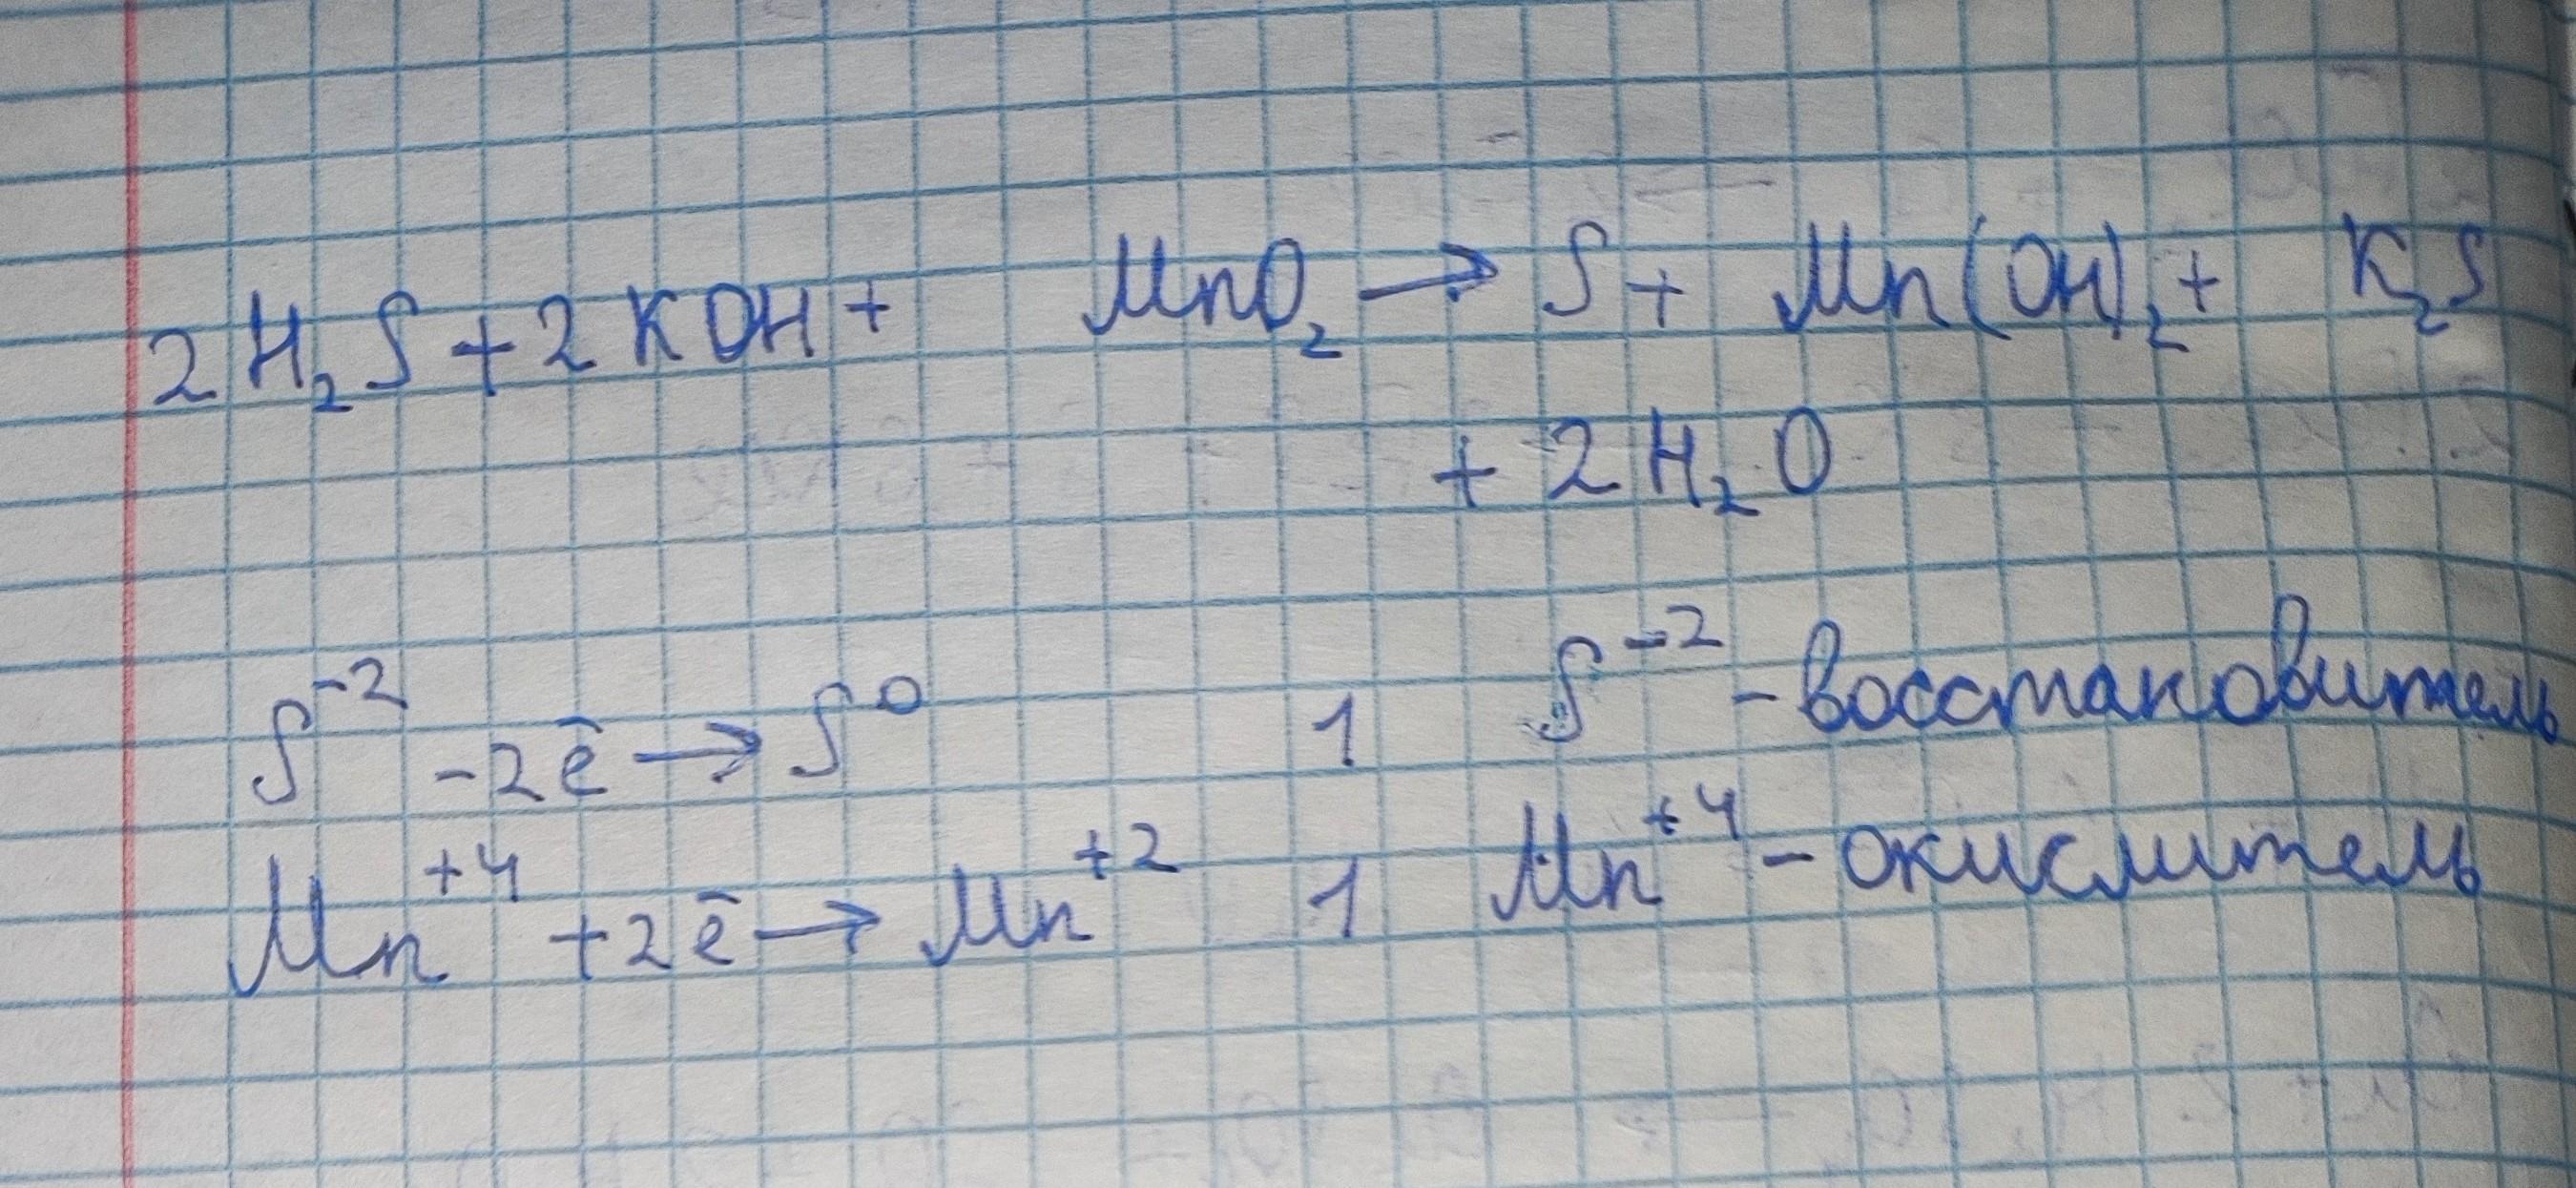 2H₂S + 2KOH + MnO₂ → S + Mn(OH)₂ + K₂S
+ 2H₂O
S⁻² - 2ē → S⁰ 1 S⁻² - восстановитель
Mn⁺⁴ + 2ē → Mn⁺² 1 Mn⁺⁴ - окислитель